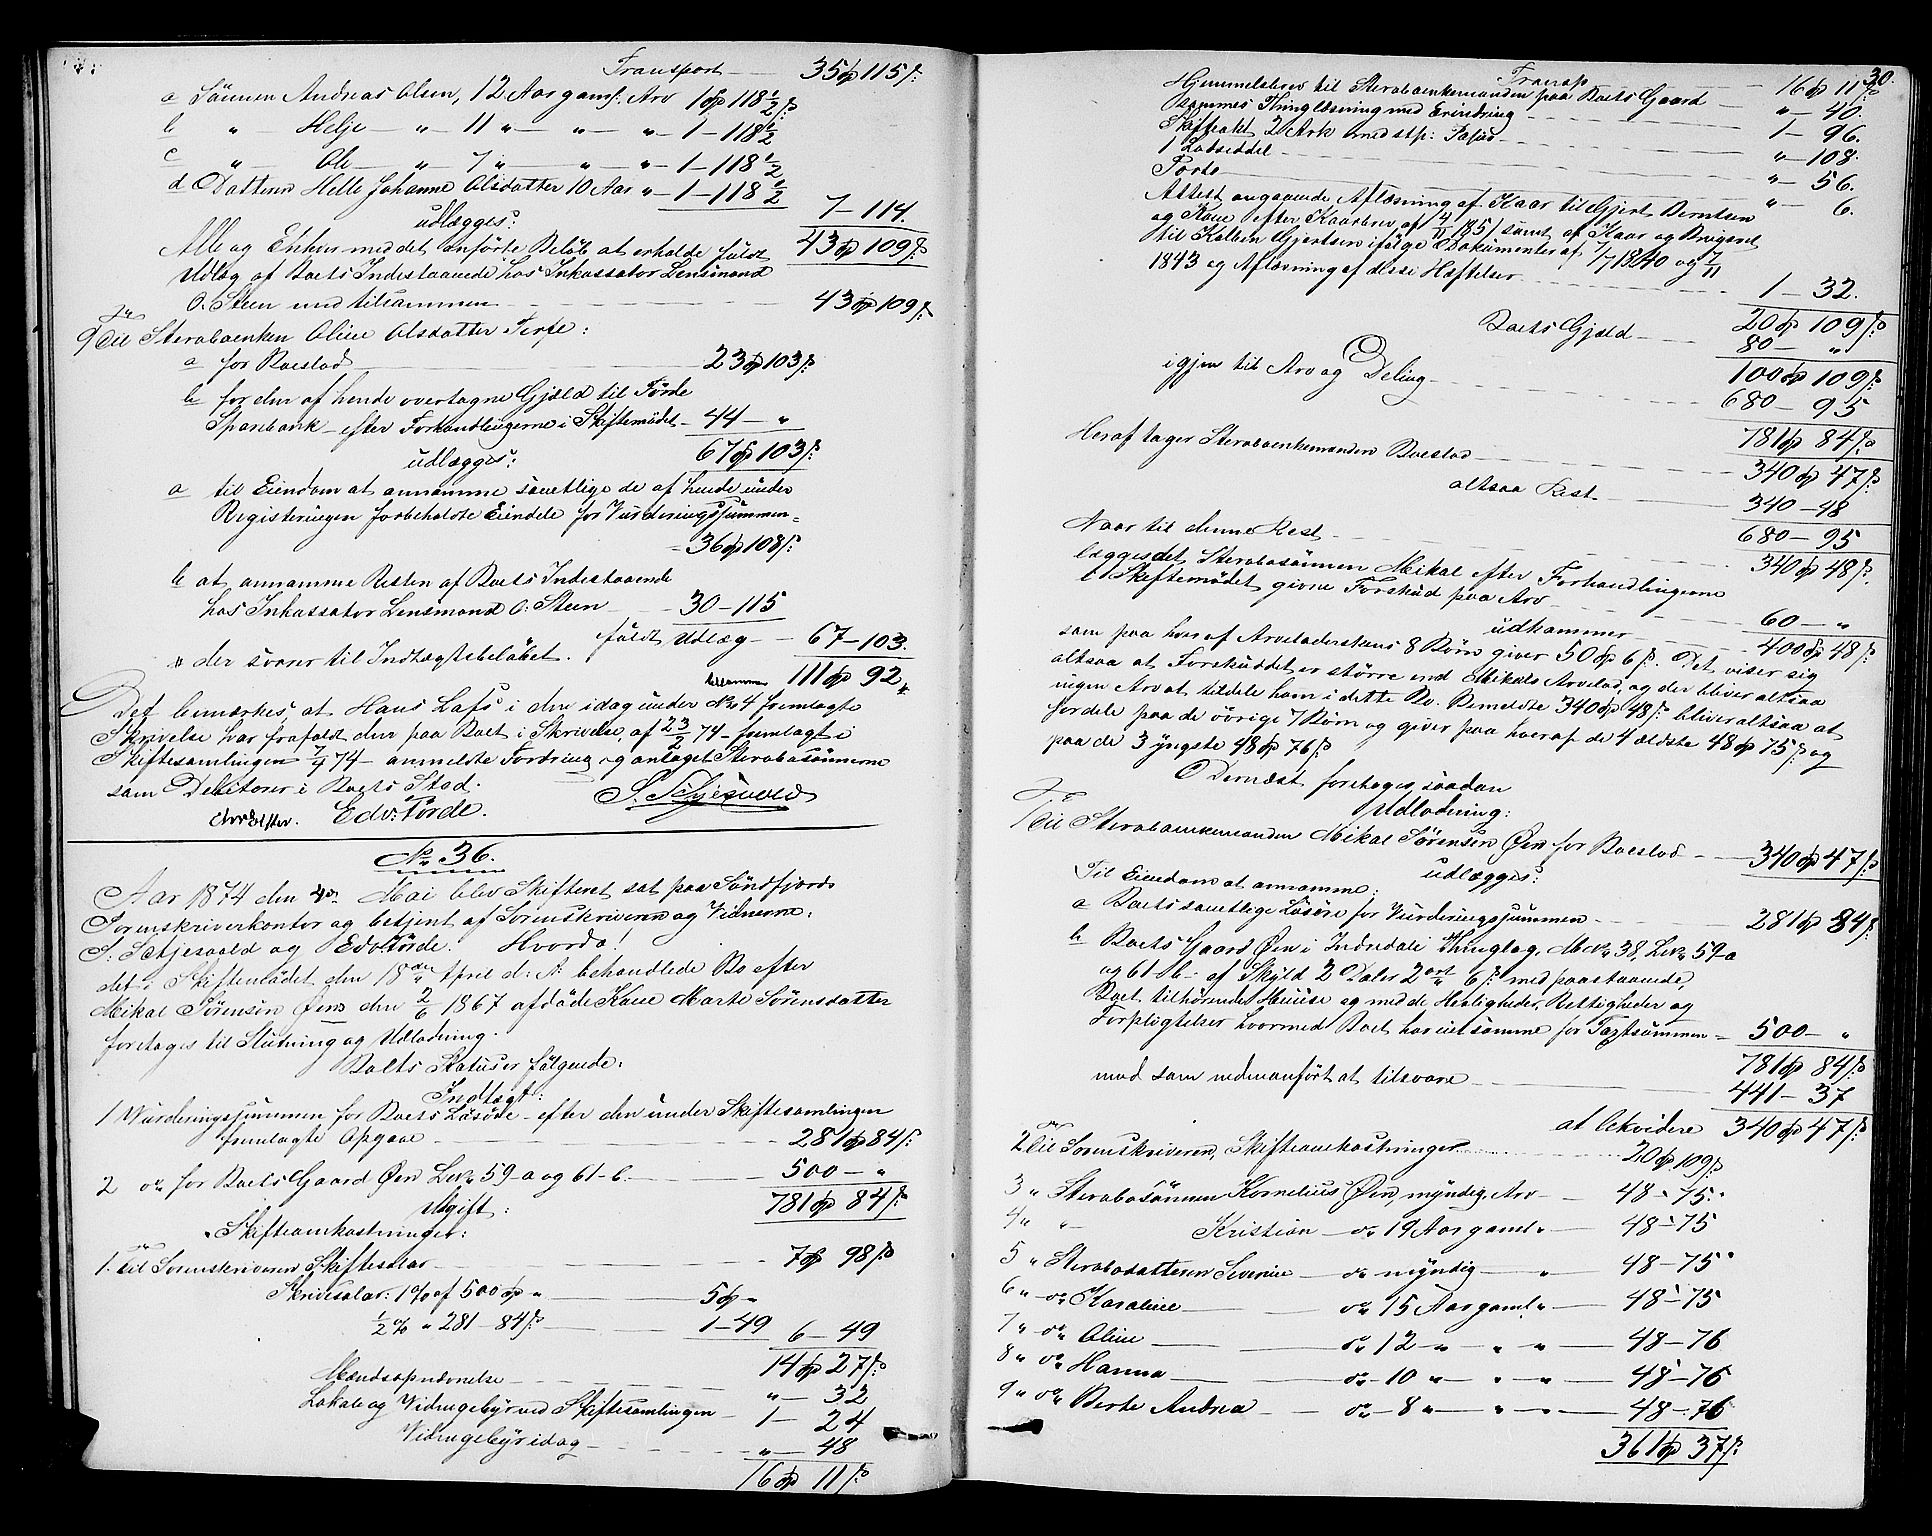 Transport 35 Sp 115 s:
a Sönnen Andreas Olsen, 12 Aar gaml. Arv 1 Sp 118 1/2 s
b " Helje — " — 11 " — " — " — 1 — 118 1/2
c " Ole — " — 7 " — " — " — 1 — 118 1/2
d Datteren Helle Johanne Olsdatter 10 Aar " — 1 — 118 1/2
7 — 114.
udlægges: 43 Sp 109 s:
Alle og Enhver med det anförte Belöb at erholde fuldt
Udlæg af Boets Indestaaende hos Inkassator Lensmand
O. Steen med tilsammen 43 Sp 109 s:
9 Til Sterboenken Oline Olsdatter Ferse:
a for Boeslod 23 Sp 103 s:
b for den af hende overtagne Gjæld til Förde
Sparebank — efter Forhandlingerne i Skiftemödet — 44 — "
67 Sp 103 s:
udlægges:
a til Eiendom at annamme samtlige de af hende under
Registeringen forbeholdte Eiendele for Vurderingssummen =
36 Sp 108 s:
b at annamme Resten af Boets Indestaaende
hos Inkassator Lensmand O. Steen — 30 — 115
fuldt Udlæg — 67 — 103.
" der svarer til Indtægtsbelöbet. tilsammen 111 Sp 92 "
Det bemærkes, at Hans Lafs i den idag under No 4 fremlagte
Skrivelse har frafaldt den paa Boet i Skrivelse af 23/2 74 — fremlagt i
Skiftesamlingen 7/4 74 — anmeldte Fordring og antaget Sterbosönnerne
som Debitorer i Boets Sted.
Edv: Förde. S. Schjesvold
No 36.
Aar 1874 den 4de Mai blev Skifteret sat paa Söndfjords
Sorenskriverkontor og betjent af Sorenskriveren og Vidnerne:
S. Schjesvold og Edv. Förde. Hvorda!
det i Skiftemödet den 18de April d: A: behandlede Bo efter
Mikal Sörensen Öens den 2/6 1867 afdöde Kone Marte Sörensdatter
foretoges til Slutning og Udlodning.
Boets Status er fölgende:
Indtægt:
1 Vurderingssummen for Boets Lösöre — efter den under Skiftesamlingen
fremlagte Opgave 281 Sp 84 s:
2 do for Boets Gaard Öen Lno 59-a og 61-b. 500 — "
781 Sp 84 s:
Udgift:
Skifteomkostninger:
1. Til Sorenskriveren Skiftesalar 7 Sp 98 s:
Skrivesalar: 1% af 500 Sp " 5 Sp "
1/2 % " 281 — 84 s: 1 — 49 6 — 49
14 Sp 27 s:
Mændsopnævnelse " — 32
Lokale og Vidnegebyr ved Skiftesamlingen — 1 — 24
Vidnegebyr idag " — 48
16 Sp 11 s:
30.
Transp 16 Sp 11 s
Hjemmelsbrev til Sterboenkemanden paa Boets Gaard " — 40.
Sammes Thinglæsning med Erindring 1 — 96.
Skifteakt 2 Ark med stp: Papir " — 108.
1 Lodseddel " — 56.
Porto " — 6.
Attest angaaende Aflæsning af Kaar til Gjert Berntsen
og Kone efter Kaarbrev af 4/11 1851 samt af Kaar og Brugsret
til Kolben Gjertsen ifölge Dokumenter af 7/7 1840 og 7/11
1843 og Aflæsning af disse Heftelser 1 — 32.
20 Sp 109 s
Boets Gjæld 80 — "
100 Sp 109 s:
igjen til Arv og Deling 680 — 95
781 Sp 84 s
Heraf tager Sterboenkemanden Boeslod 340 Sp 47 s:
altsaa Rest 340 — 48
680 — 95
Naar til denne Rest 340 Sp 48 s.
lægges det Sterbosönnen Mikal efter Forhandlingerne
i Skiftemödet givne Forskud paa Arv 60 — "
udkommer 400 Sp 48 s:
som paa hver af Arveladerskens 8 Börn giver 50 Sp 6 s. Det viser sig
altsaa at Forskuddet er större end Mikals Arvelod, og der bliver altsaa
ingen Arv at tildele ham i dette Bo. Bemeldte 340 Sp 48 s: bliver altsaa at
fordele paa de övrige 7 Börn og giver paa hver af de 4 ældste 48 Sp 75 s og
paa de 3 yngste 48 Sp 76 s.
Dernæst foretoges saadan
Udlodning:
1 Til Sterboenkemanden Mikal Sörensen Öen for Boeslod 340 Sp 47 s
udlægges:
Til Eiendom at annamme:
a Boets samtlige Lösöre for Vurderingssummen 281 Sp 84 s:
b Boets Gaard Öen i Indredale Thinglag, M.No 38, Lno 59-a
og 61-b — af Skyld 2 Daler 2 ort 6 s: med paastaaende,
Boet tilhörende Huuse og med de Herligheder, Rettigheder og
Forpligtelser hvormed Boet har eiet samme for Taxtsummen = 500 — "
781 Sp 84 s:
mod som nedenanfört at tilsvare 441 — 37
at likvidere 340 Sp 47 s:
2 Til Sorenskriveren, Skifteomkostninger 20 Sp 109 s
3 " Sterbosönnen Kornelius Öen, myndig Arv — 48 — 75.
4 " " — Kristian — do 19 Aar gaml " — 48 — 75
5 " Sterbodatteren Severine — do myndig — " — 48 — 75
6 " do Karoline — do 15 Aar gaml " — 48 — 75
7 " do Oline — do 12 " " " — 48 — 76
8 " do Hanna — do 10 " " " — 48 — 76
9 " do Berte Andrea — do 8 " " " — 48 — 76
361 Sp 37 s: